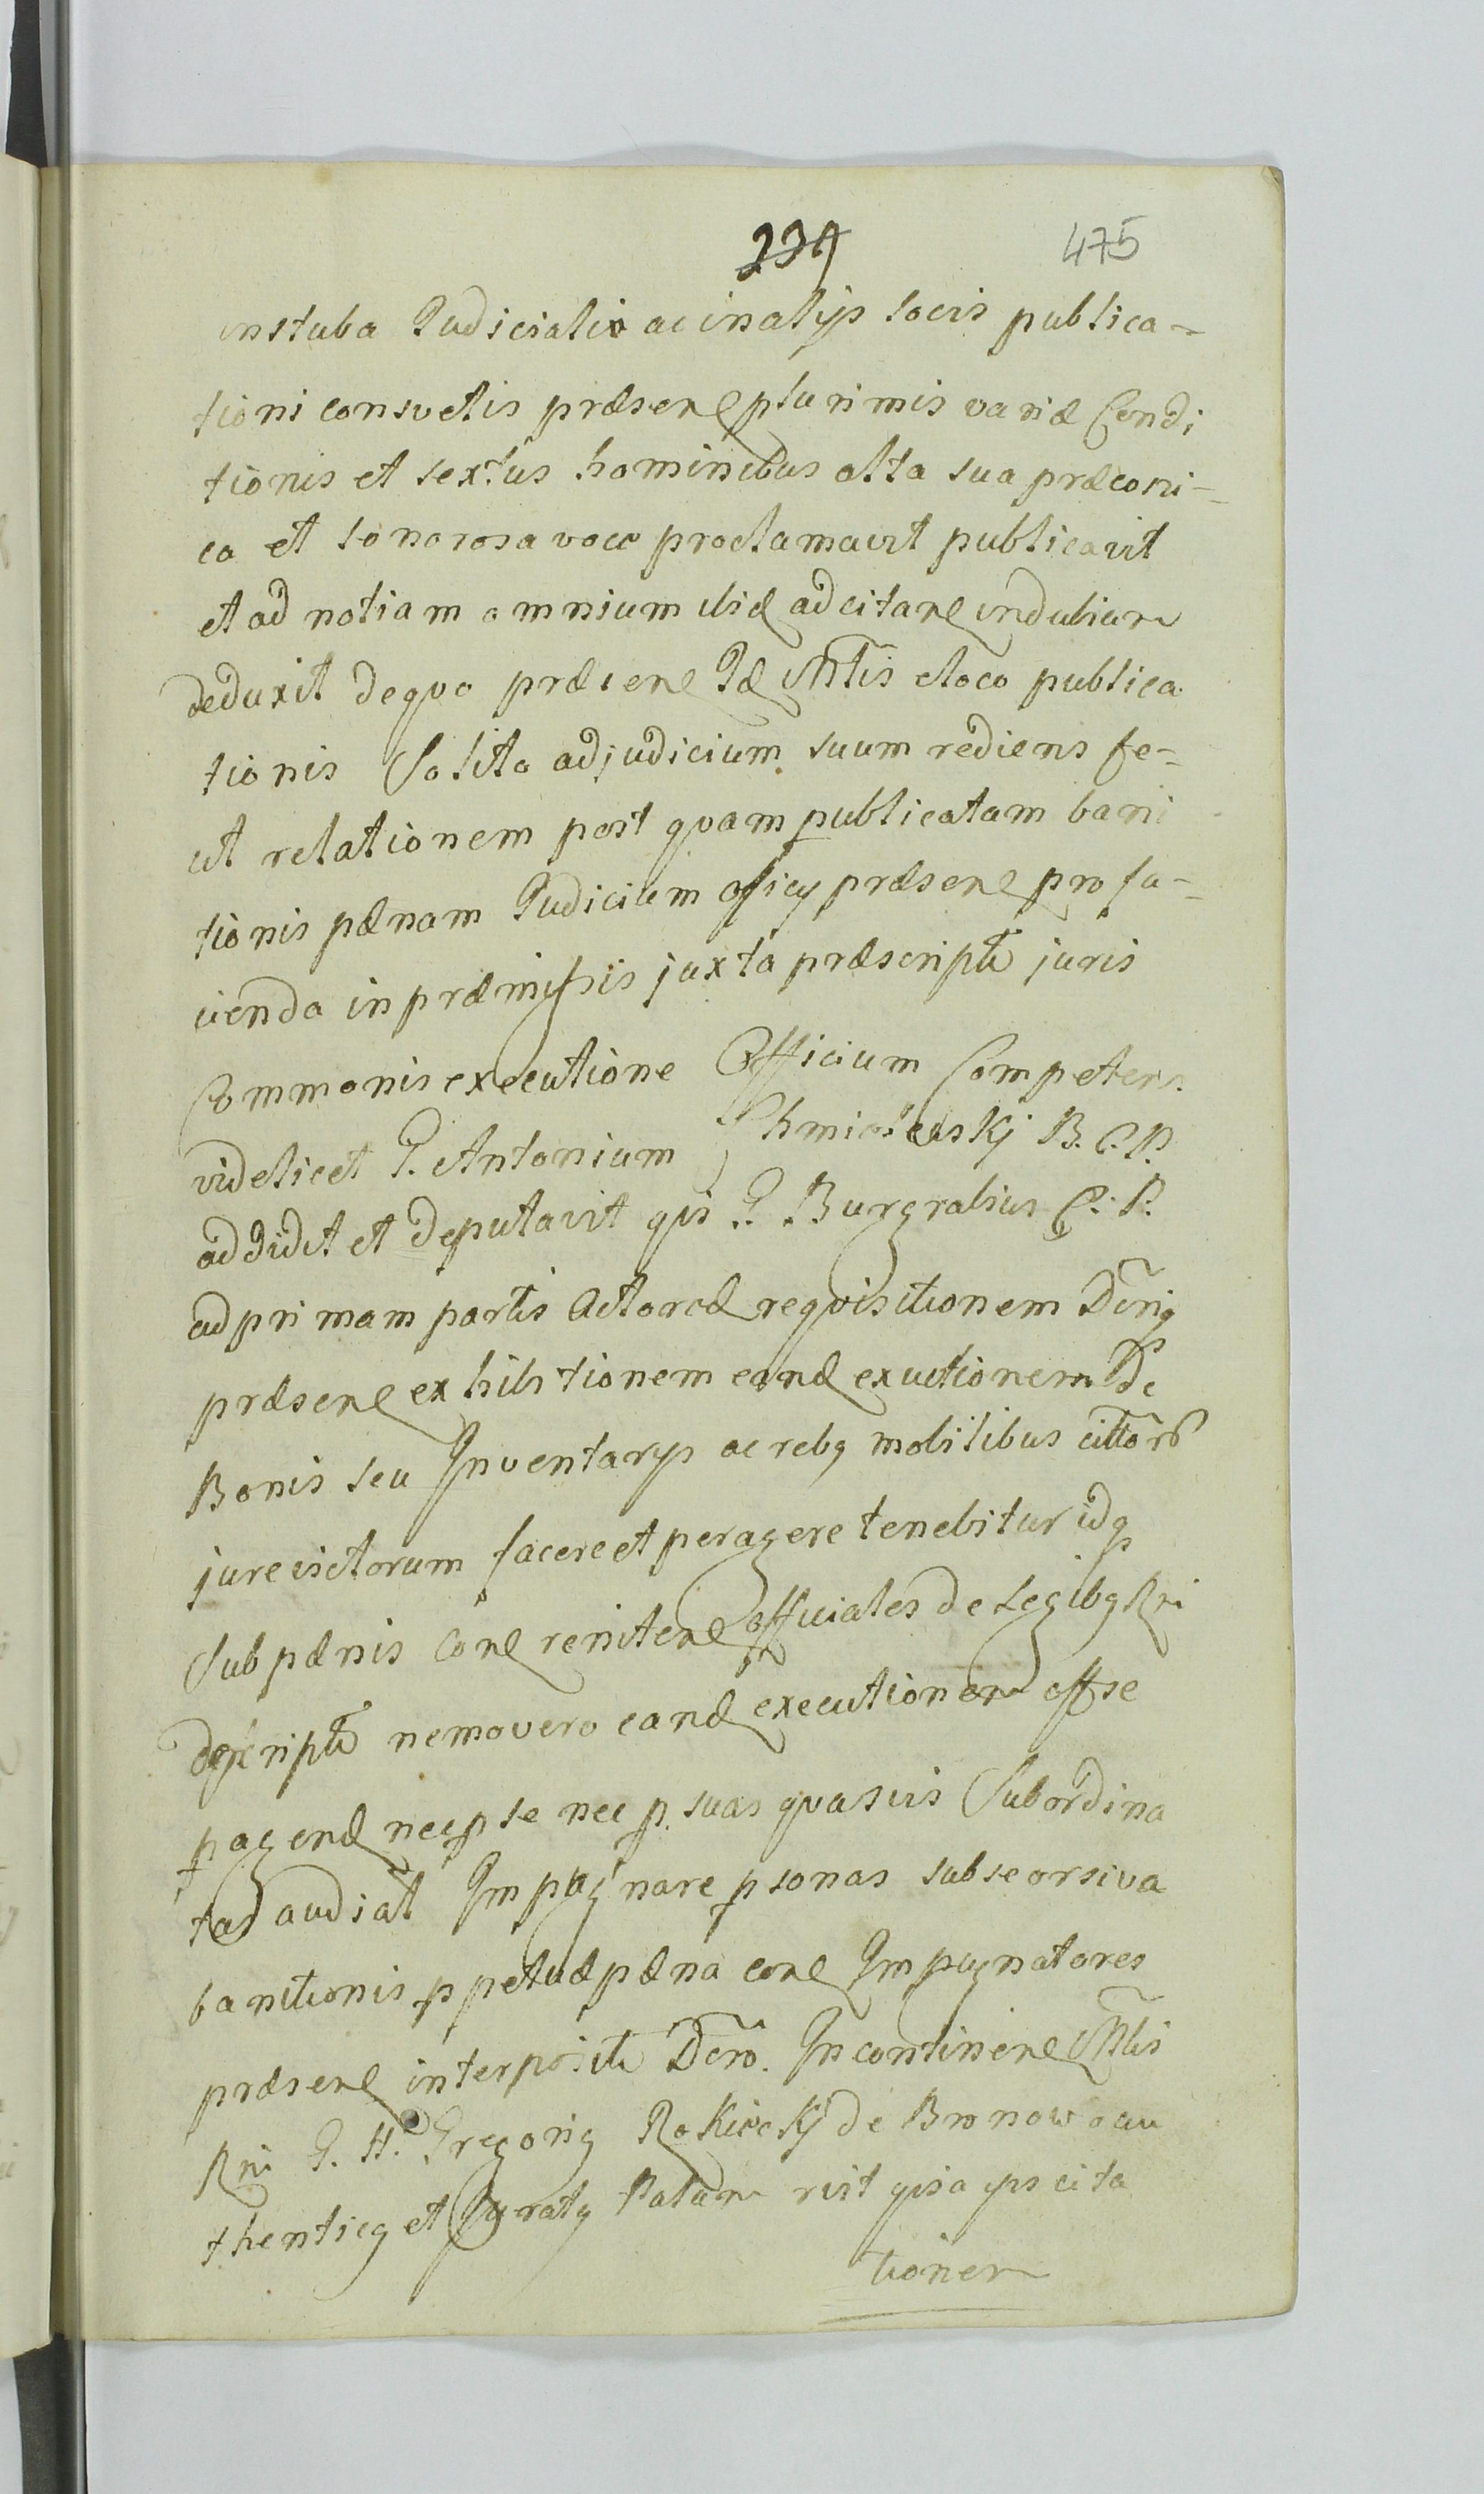 239 475
in stuba Judicialis ac in alijs locis publica-
tioni consvetis præsen plurimis variæ Condi
tionis et sextus hominibus alta sua præconi-
ca et sonorosa voce proclamavit publicavit
et ad notiam omnium ibid ad citan indubiam
deduxit de qvo præsen eloco publica
tionis Solito ad judicium suum rediens fe-
cit relationem post qvam publicatam bani
tionis pænam Judicium officij præsen pro fa-
cienda in præmissis juxta præscript juris
Commonis executione Officium Competens
videlicet G. Antonium B. C. P.
addidit et deputavit qvi G. Burgrabius C. P.
ad primam partis Actoreæ reqvisitionem
præsen exhibitionem eand exuctionem De
Bonis seu Inventarys ac rebq mobilibus
jure victorum facere et peragere tenebitur idq
Sub pænis con reniten officiales de Legibq Rni
descript nemo vero eand executionem offse
pagend nec p se nec p suas qvasvis Subordina
tas audiat Impugnare psonas sub seorsiva
banitionis ppetuæ pæna con Impugnatores
præsen interposit Incontinen
Rni G. H. Gregoriq Rokickij de Bronowo au
thenticq et Juratq Palam
tionem